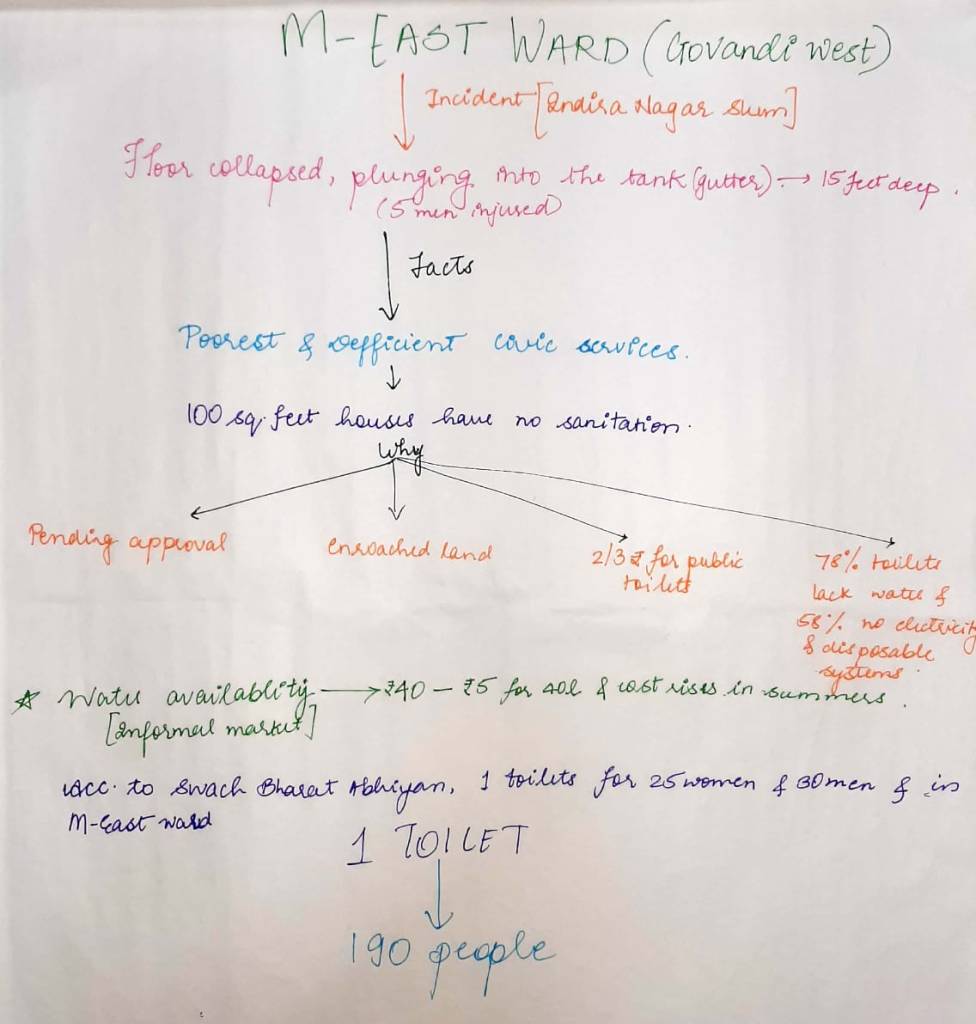 M-EAST WARD (Govandi west)
Incident [Indira Nagar Slum]
Floor collapsed, plunging into the tank (gutter) → 15 feet deep.
(5 men injured)
Facts
Poorest & Defficient civic services.
100 sq. feet houses have no sanitation.
Why
Pending approval
enroached land
2/3 ₹ for public
toilets
78% toilets
lack water &
58% no electricity
& disposable
systems.
☆ Water availablity → ₹40 - ₹5 for 40l & cost rises in summers.
[Informal market]
Acc. to Swach Bharat Abhiyan, 1 toilets for 25 women & 30 men & in
M-East ward
1 TOILET
190 people